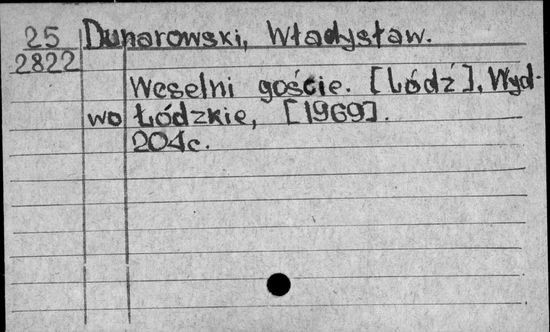 25 Dunarowski, Władysław.
2822
Weselni goście. [Łódź], Wyd-
wo Łódzkie, [1969].
204c.